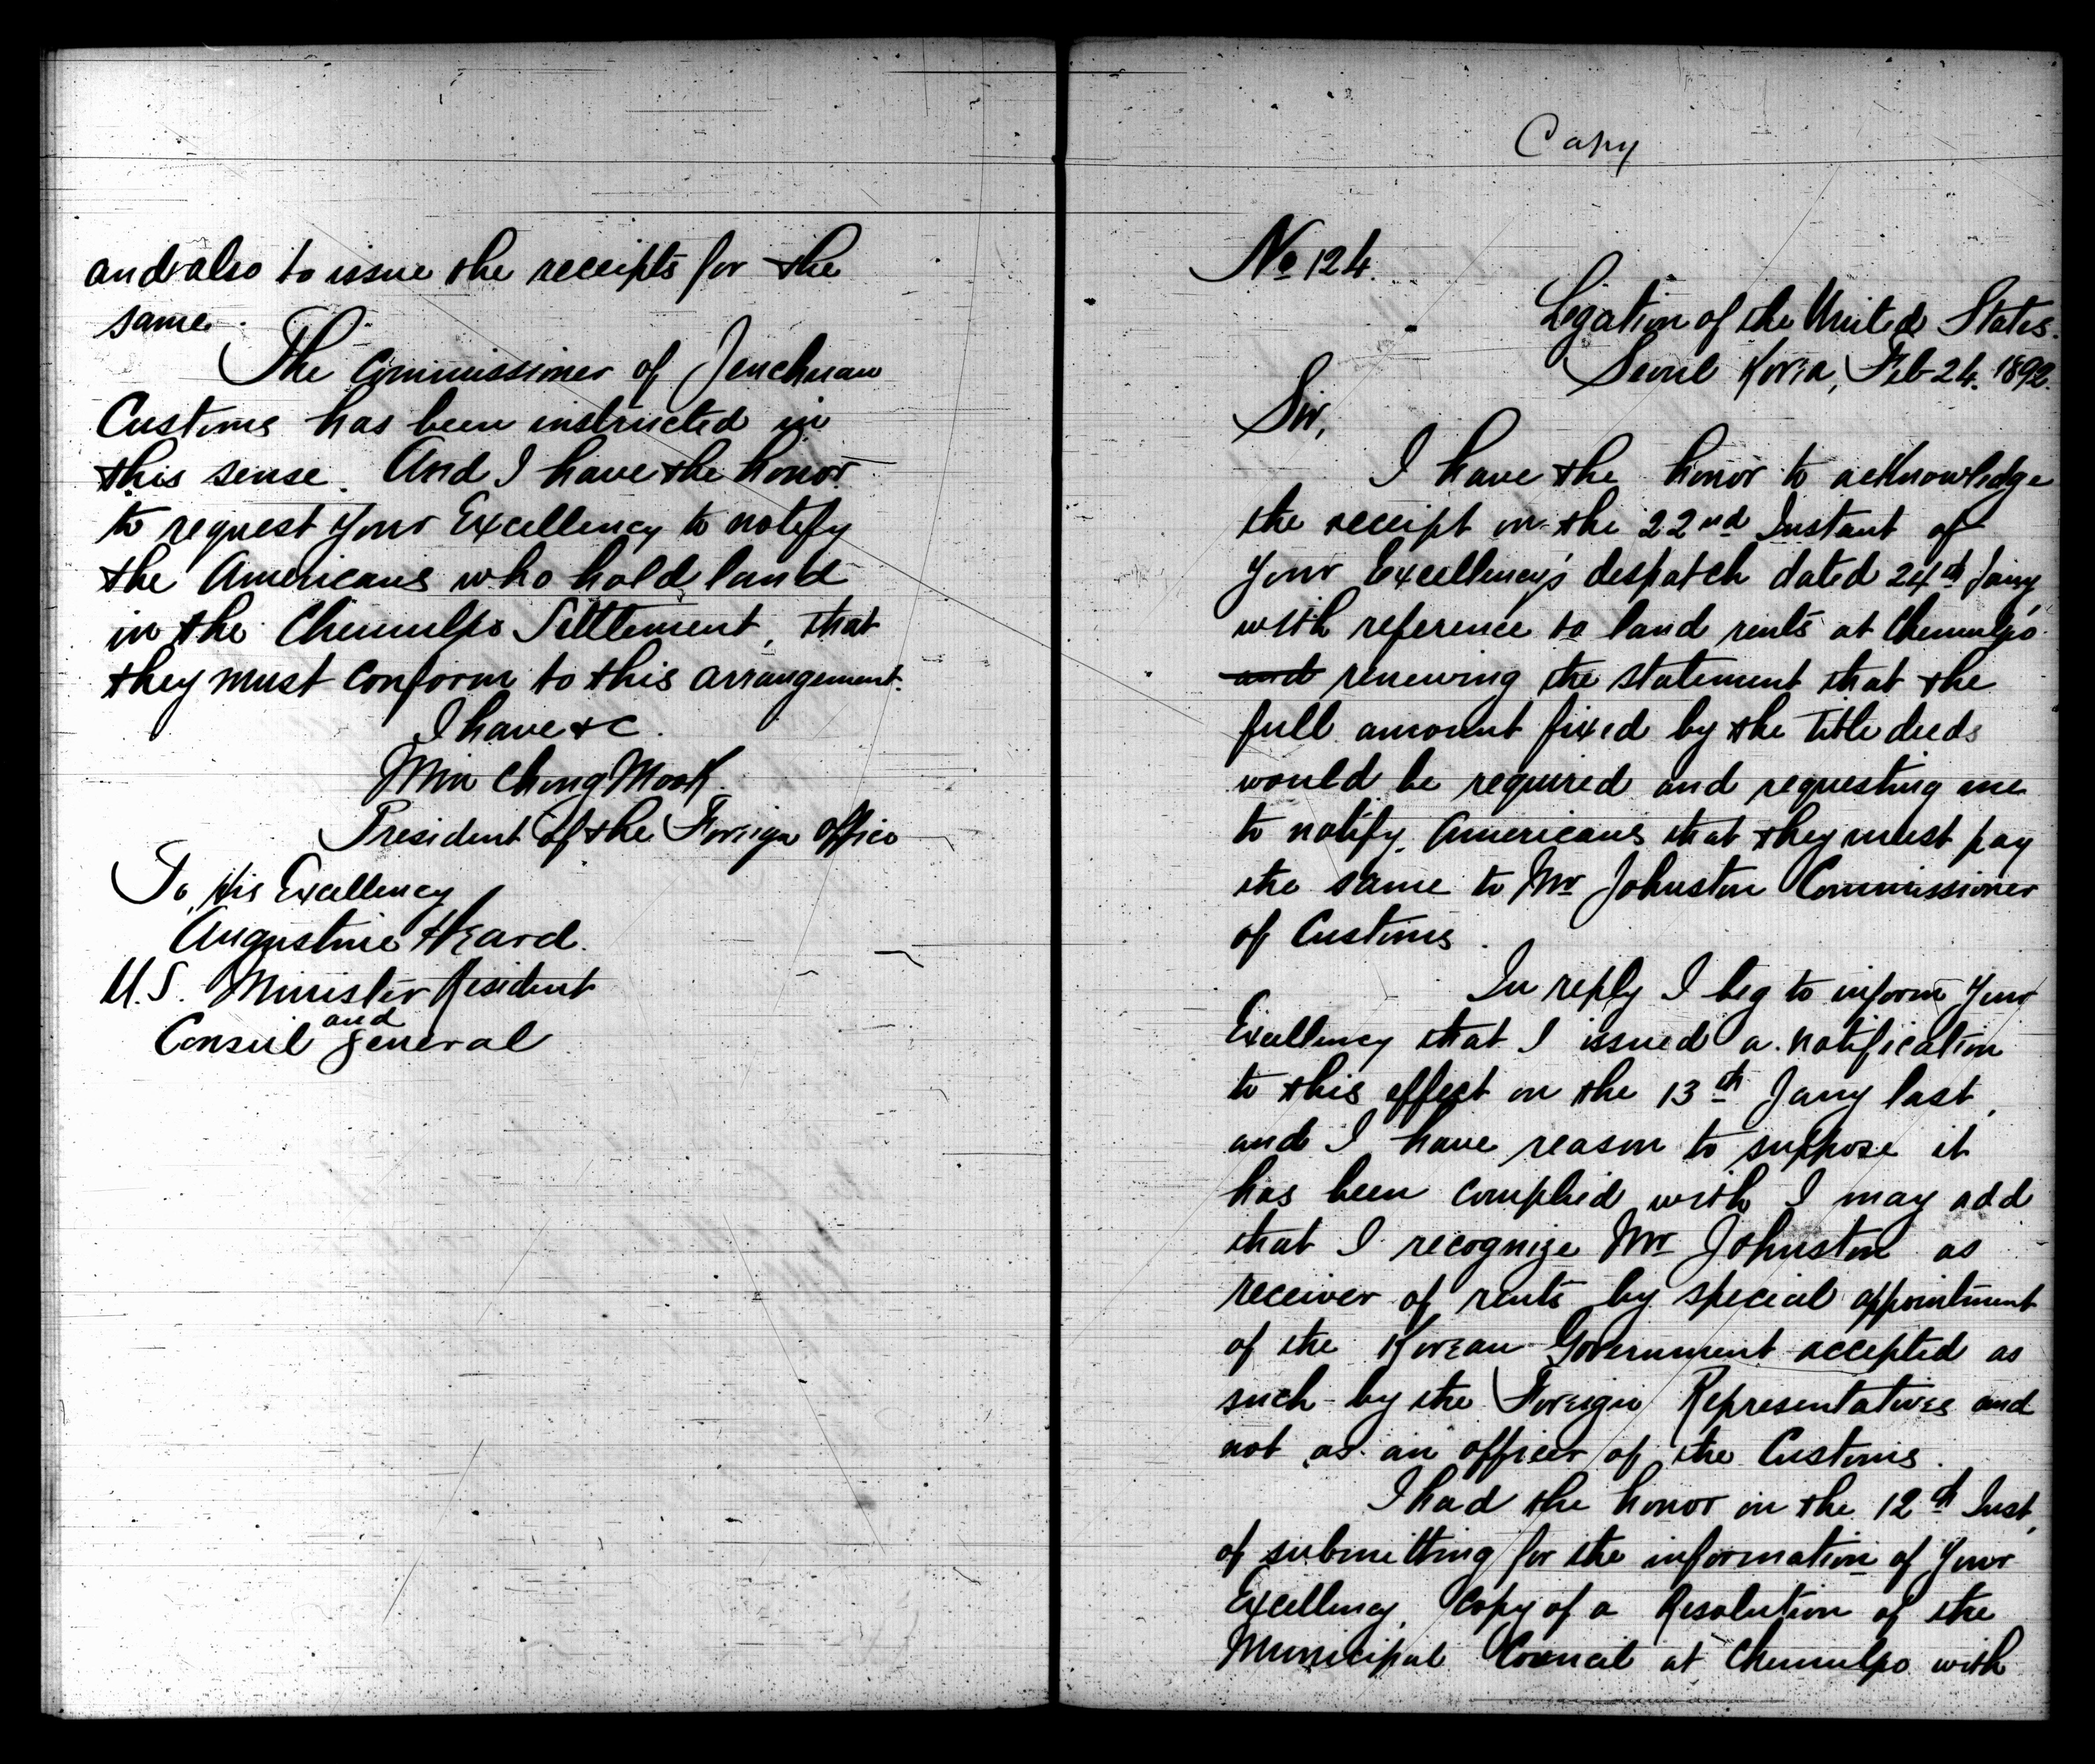 and also to issue the receipts for the
same.
The Commissioner of Jenchuan
Customs has been instructed in
this sense. And I have the honor
to request Your Excellency to notify
the Americans who hold land
in the Chemulpo Settlement, that
they must conform to this arrangement.
I have &c.
Min Chong Mook.
President of the Foreign Office
To His Excellency
Augustine Heard.
U.S. Minister Resident
and
Consul General
Copy
No 124.
Legation of the United States.
Seoul Korea, Feb 24. 1892.
Sir,
I have the honor to acknowledge
the receipt on the 22nd Instant of
Your Excellency's despatch dated 24th Jany,
with reference to land rents at Chemulpo
and renewing the statement that the
full amount fixed by the Title deeds
would be required and requesting me
to notify Americans that they must pay
the same to Mr Johnston Commissioner
of Customs.
In reply I beg to inform Your
Excellency that I issued a notification
to this effect on the 13th Jany last,
and I have reason to suppose it
has been complied with I may add
that I recognize Mr Johnston as
receiver of rents by special appointment
of the Korean Government accepted as
such by the Foreign Representatives and
not as an officer of the Customs.
I had the honor on the 12th Inst,
of submitting for the information of Your
Excellency, Copy of a Resolution of the
Municipal Council at Chemulpo with